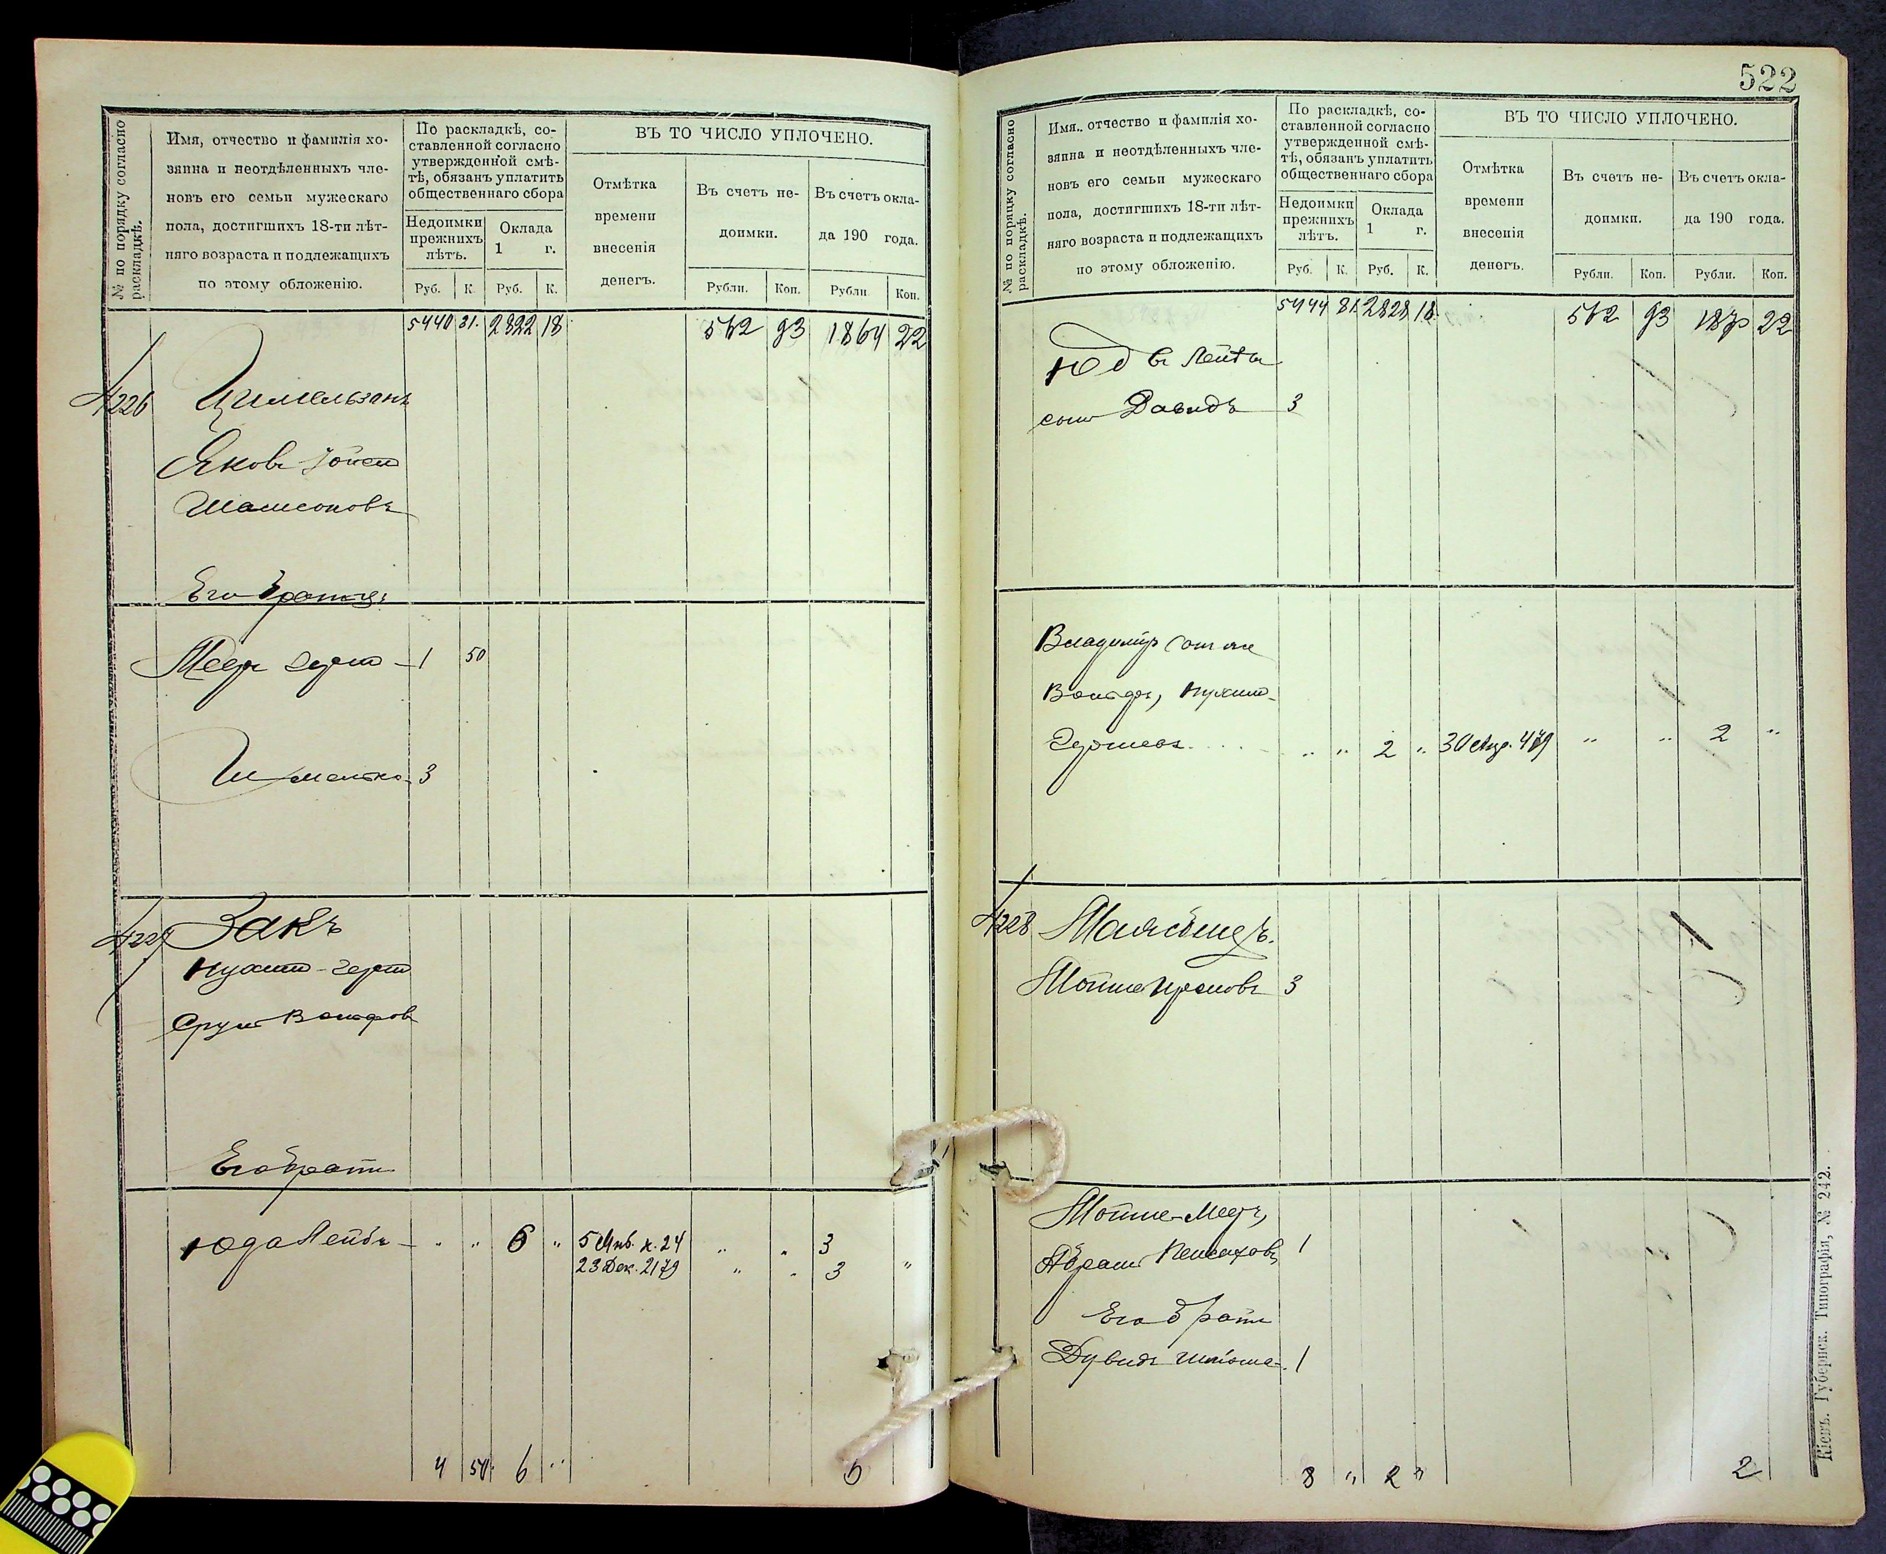 522
№ по порядку согласно раскладкѣ.
Имя, отчество и фамилія хо-
зяина и неотдѣленныхъ чле-
новъ его семьи мужескаго
пола, достигшихъ 18-ти лѣт-
няго возраста и подлежащихъ
по этому обложенію.
По раскладкѣ, со-
ставленной согласно
утвержденной смѣ-
тѣ, обязанъ уплатить
общественнаго сбора
Недоимки
прежнихъ
лѣтъ.
Оклада
1 г.
Руб. К. Руб. К.
ВЪ ТО ЧИСЛО УПЛОЧЕНО.
Отмѣтка
времени
внесенія
денегъ.
Въ счетъ не-
доимки.
Въ счетъ окла-
да 190 года.
Рубли. Коп. Рубли. Коп.
5440 31. 2822 18 512 93 1864 22
4226 Цимельзонъ
Яковъ
Шамсоновъ
Его братья:
Меер 1 50
3
4227 Закъ
Нухим-Герш
Срул Вольфов
Его братъ
Юда Лейбъ - " " 6 " 5 Янв. к. 24 " " 3
23 Дек. 2179 " " 3 "
4 50 6 " 6
№ по порядку согласно раскладкѣ.
Имя, отчество и фамилія хо-
зяина и неотдѣленныхъ чле-
новъ его семьи мужескаго
пола, достигшихъ 18-ти лѣт-
няго возраста и подлежащихъ
по этому обложенію.
По раскладкѣ, со-
ставленной согласно
утвержденной смѣ-
тѣ, обязанъ уплатить
общественнаго сбора
Недоимки
прежнихъ
лѣтъ.
Оклада
1 г.
Руб. К. Руб. К.
ВЪ ТО ЧИСЛО УПЛОЧЕНО.
Отмѣтка
времени
внесенія
денегъ.
Въ счетъ не-
доимки.
Въ счетъ окла-
да 190 года.
Рубли. Коп. Рубли. Коп.
5444 81 2828 18 512 93 1870 22
Юд
сынъ Давидъ 3
Владимір он же
Вольф, Нухим-
Гершев " " 2 " " " 2 "
4228
Мойше 3
Мойше-Меер,
Абрам Пейсахов, 1
Его братъ
Дувидъ 1
8 " 2 " 2
Кіевъ. Губернск. Типографія, № 242.